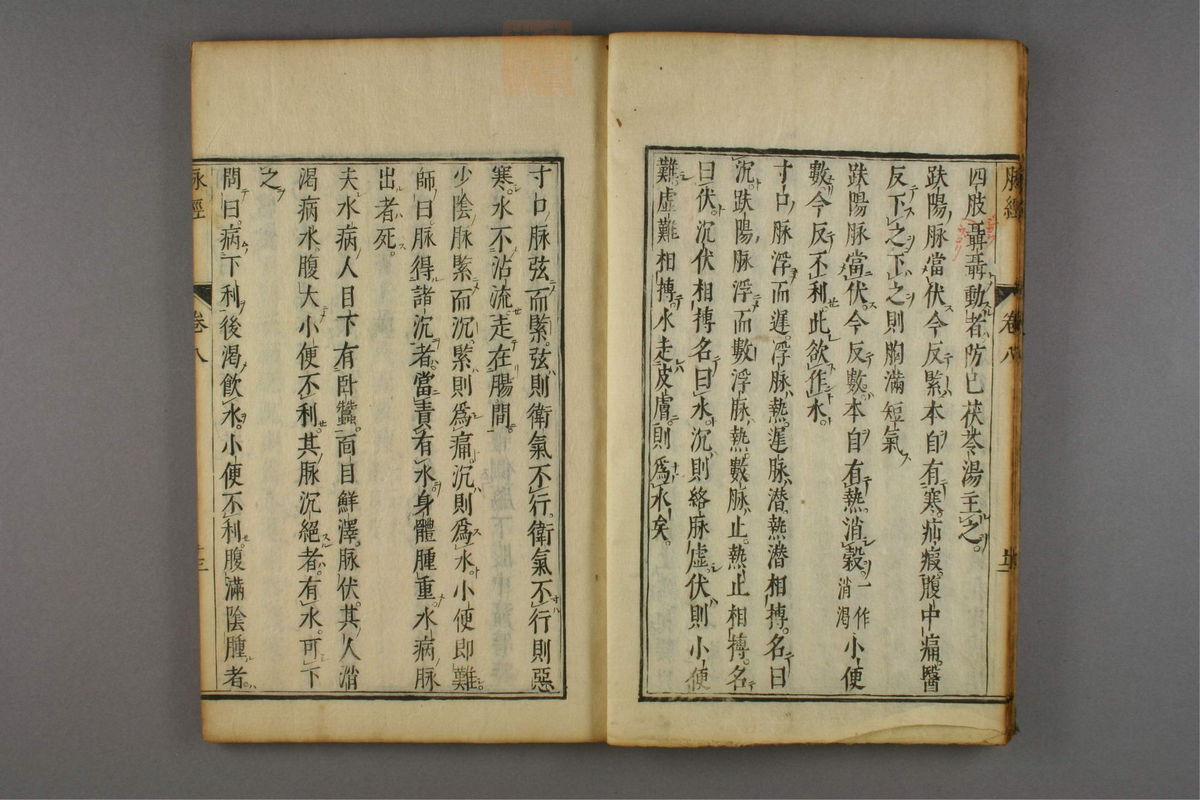 脉經
卷八
四肢聶聶動者防已茯苓湯主之
趺陽脉當伏今反緊本自有寒疝瘕腹中痛醫
反下之下之則胸滿短氣
趺陽脉當伏今反數本自有熱消穀一作消渴小便
數今反不利此欲作水
寸口脉浮而遲浮脉熱遲脉潛熱潛相摶名曰
沉趺陽脉浮而數浮脉熱數脉止熱止相摶名
曰伏沉伏相摶名曰水沉則絡脉虛伏則小便
難虛難相摶水走皮膚則爲水矣
寸口脉弦而緊弦則衛氣不行衛氣不行則惡
寒水不沾流走在腸間
少陰脉緊而沉緊則爲痛沉則爲水小便即難
師曰脉得諸沉者當責有水身體腫重水病脉
出者死
夫水病人目下有卧蠶面目鮮澤脉伏其人消
渴病水腹大小便不利其脉沉絕者有水可下
之
問曰病下利後渴飲水小便不利腹滿陰腫者
脉經
卷八
十三